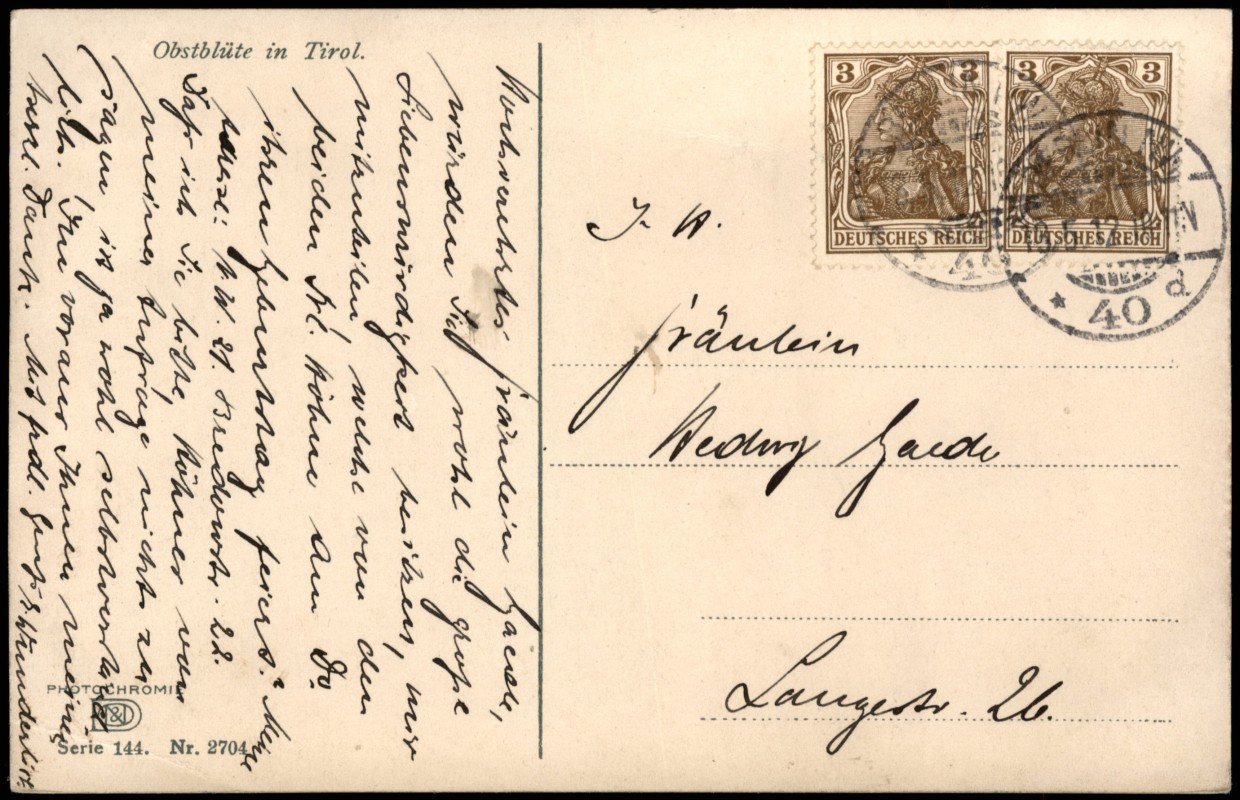 Obstblüte in Tirol.
Hochverehrtes Fräulein Gaede,
würden Sie wohl die große
Liebenswürdigkeit besitzen, mir
mitzuteilen, welche von den
beiden Frl. Höhne am Do
ihren Geburtstag feiert? Meine
Adresse: N.W. 21. Bredowstr. 22.
Daß ich Sie bitte, Höhner von
meiner Anfrage nichts zu
sagen ist ja wohl selbstverständ
lich. Im voraus Ihnen meinen
Dank. Mit frdl. Gruß
PHOTOCHROMIE
Serie 144. Nr. 2704
3 3
DEUTSCHES REICH
3 3
DEUTSCHES REICH
* 40 d
Fräulein
Hedwig Gaede
Langestr. 26.